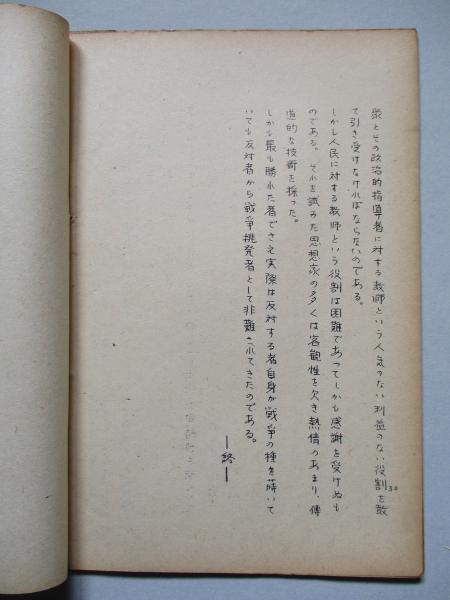 衆とその政治的指導者に対する教師という人気のない利益のない役割を敢
て引き受けなければならないのである。
しかし人民に対する教師という役割は困難であってしかも感謝を受けぬも
のである。それを試みた思想家の多くは客観性を欠き熱情のあまり、傳
道的な技術を採った。
しかも最も勝れた者でさえ実際は反対する者自身が戦争の種を蒔いて
いても反対者から戦争挑発者として非難されてきたのである。
―終―